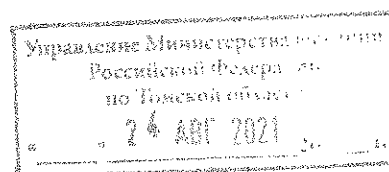 Управление Министерства
Российской
по Томской
" " 24 АВГ 2021